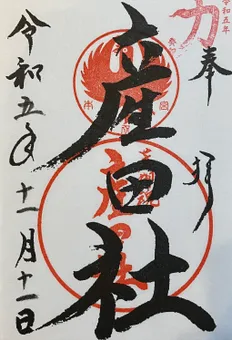 令和五年
奉拝
産田社
本宮
令和五年十一月十一日